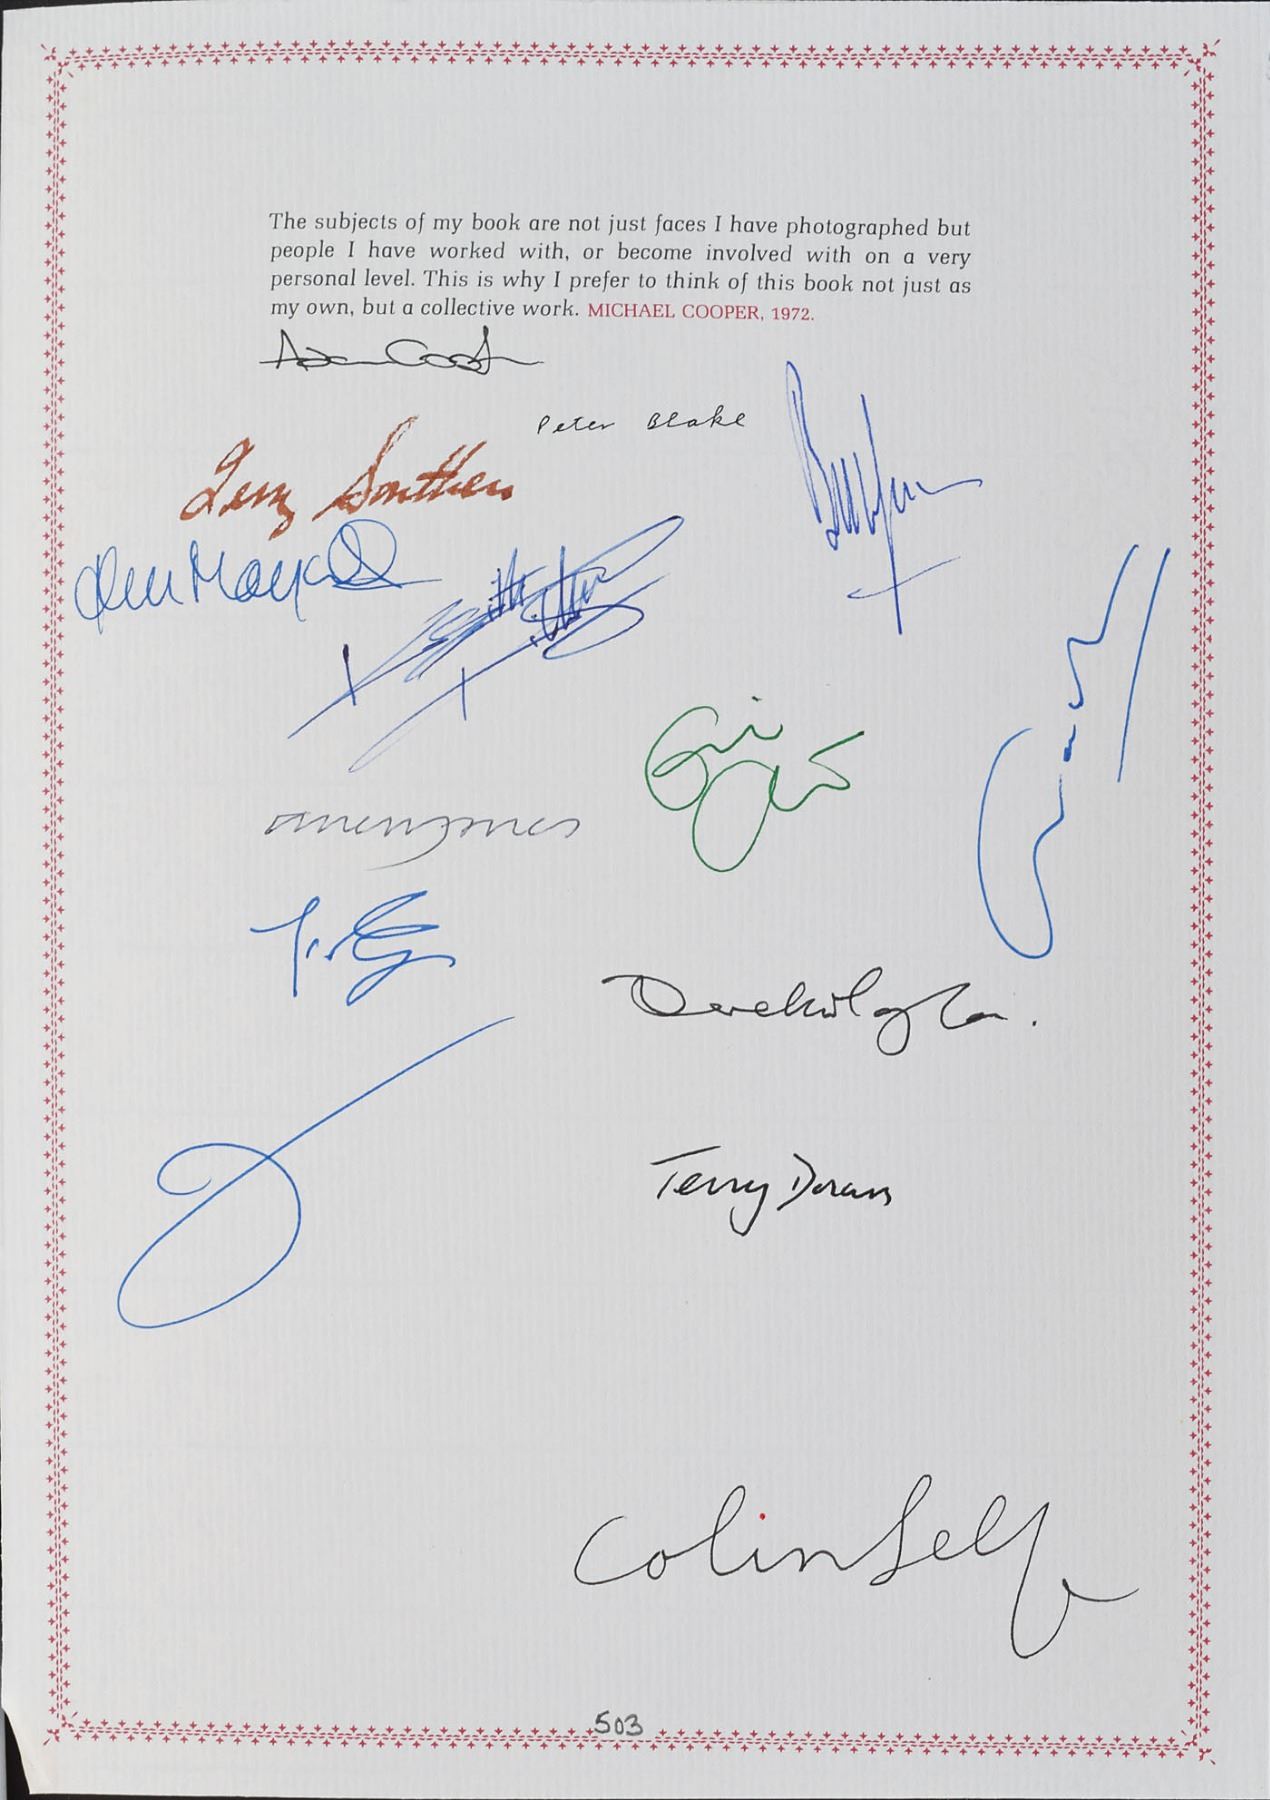 The subjects of my book are not just faces I have photographed but
people I have worked with, or become involved with on a very
personal level. This is why I prefer to think of this book not just as
my own, but a collective work. MICHAEL COOPER, 1972.
Adam Cooper
Peter Blake
Terry Southern
Keith Richards
anonymous
Derek Taylor.
Terry Doran
Colin Self
503